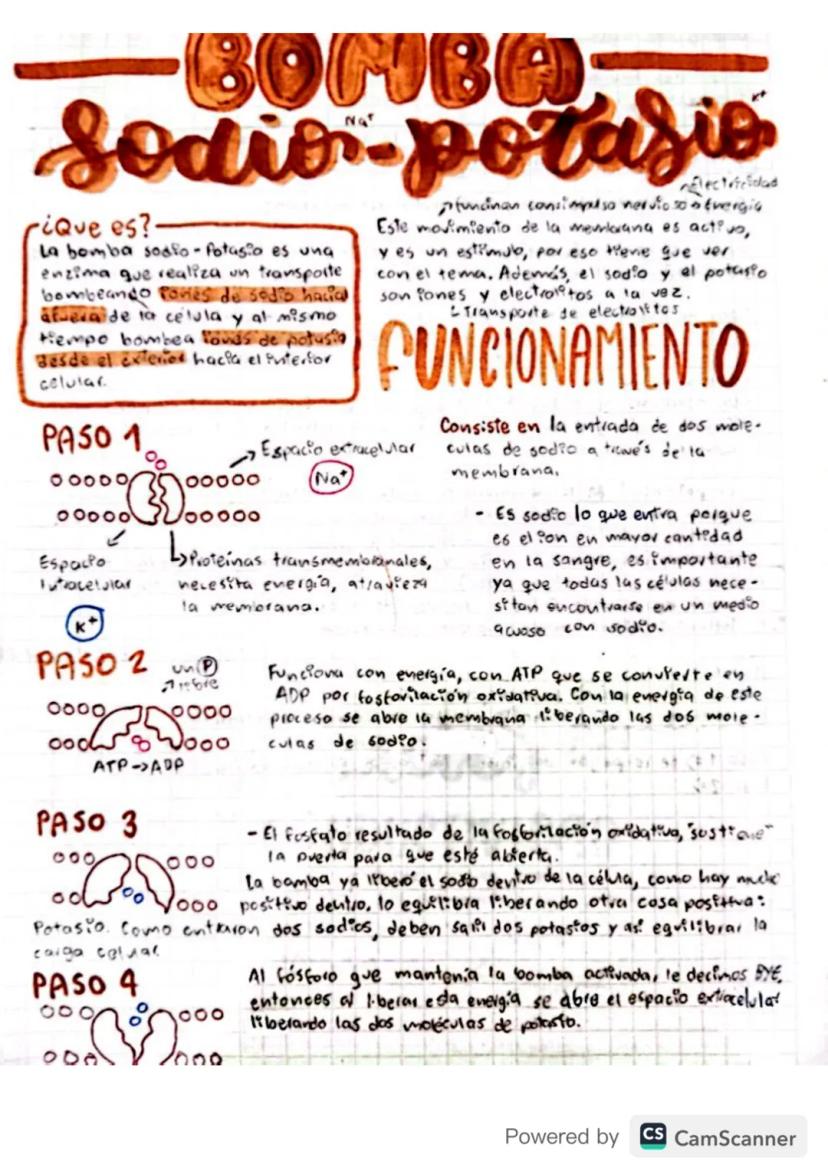 BOMBA
sodio-potasio
Na⁺
K⁺
Electricidad
funcionan con impulso nervioso o energía
¿Que es?
La bomba sodio-Potasio es una
enzima que realiza un transporte
bombeando iones de sodio hacia
afuera de la célula y al mismo
tiempo bombea iones de potasio
desde el exterior hacia el interior
celular.
Este movimiento de la membrana es activo,
y es un estímulo, por eso tiene que ver
con el tema. Además, el sodio y el potasio
son iones y electrolitos a la vez.
Transporte de electrolitos
FUNCIONAMIENTO
PASO 1
Espacio extracelular
Na⁺
Espacio
Intracelular
K⁺
Proteínas transmembranales,
necesita energía, atraviesa
la membrana.
Consiste en la entrada de dos mole-
culas de sodio a través de la
membrana.
- Es sodio lo que entra porque
es el ion en mayor cantidad
en la sangre, es importante
ya que todas las células nece-
sitan encontrarse en un medio
acuoso con sodio.
PASO 2
un P
libre
ATP->ADP
Funciona con energía, con ATP que se convierte en
ADP por fosforilación oxidativa. Con la energía de este
proceso se abre la membrana liberando las dos mole-
culas de sodio.
PASO 3
- El fosfato resultado de la fosforilación oxidativa, "sostiene"
la puerta para que esté abierta.
La bomba ya liberó el sodio dentro de la célula, como hay mucho
positivo dentro, lo equilibra liberando otra cosa positiva:
Potasio. Como entraron dos sodios, deben salir dos potasios y así equilibrar la
carga celular
PASO 4
Al fósforo que mantenía la bomba activada, le decimos BYE,
entonces al liberar esta energía se abre el espacio extracelular
liberando las dos moléculas de potasio.
Powered by CS CamScanner